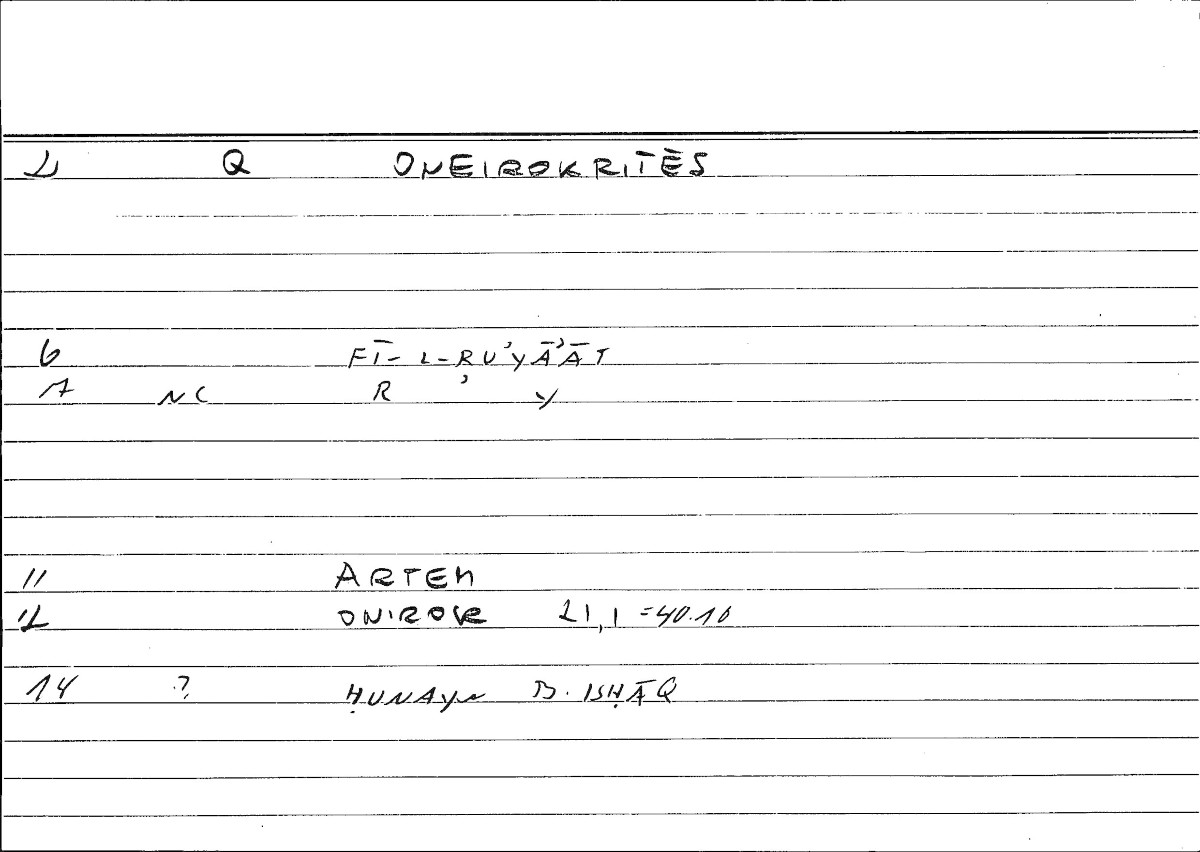 2 Q ONEIROKRITĒS
6 FĪ-L-RUʾYĀʾĀT
7 NC R ʾ Y
11 ARTEM
12 ONIROK 21,1 =40.10
14 ? ḤUNAYN B. ISḤĀQ